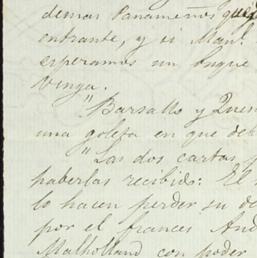 demas Panameños que
entrante, y si Man.
esperamos un buque
venga.
"Barsallo y Quen
una goleta en que deb
"Las dos cartas
haberlas recibido: El
lo hacen perder su de
por el frances And
Mulholland con poder